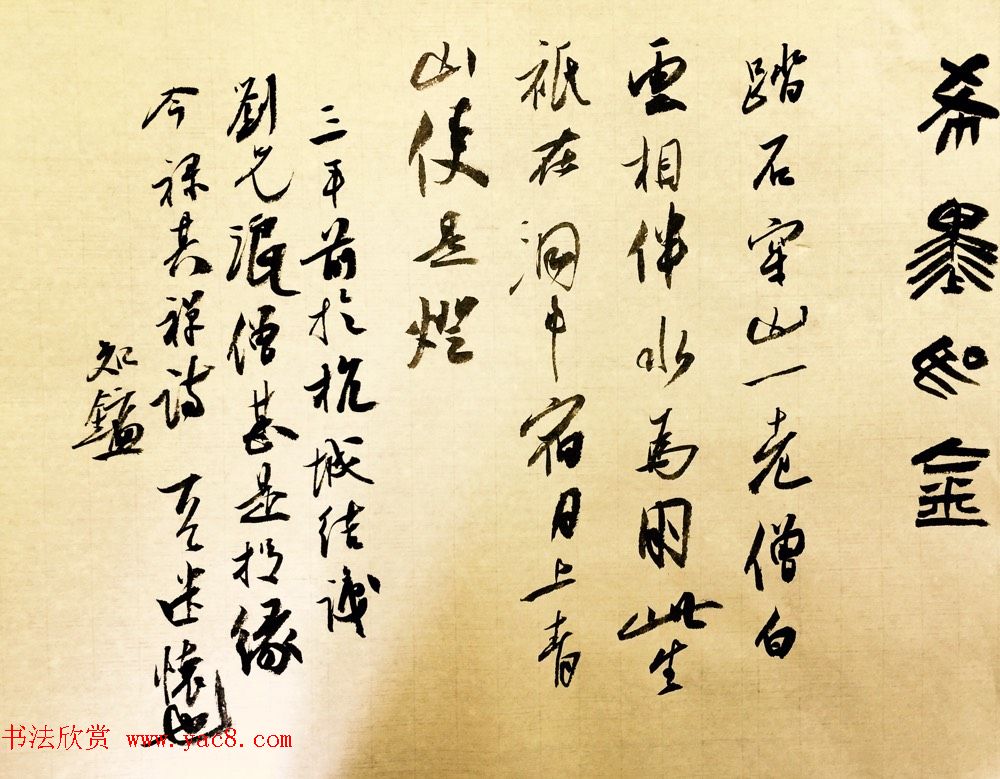 希墨如金
踏石穿山一老僧白
雲相伴水為朋此生
祇在洞中宿月上青
山便是燈
三年前於杭城結識
劉兄僧甚是投緣
今錄其禪詩懷也
知
书法欣赏 www.yac8.com